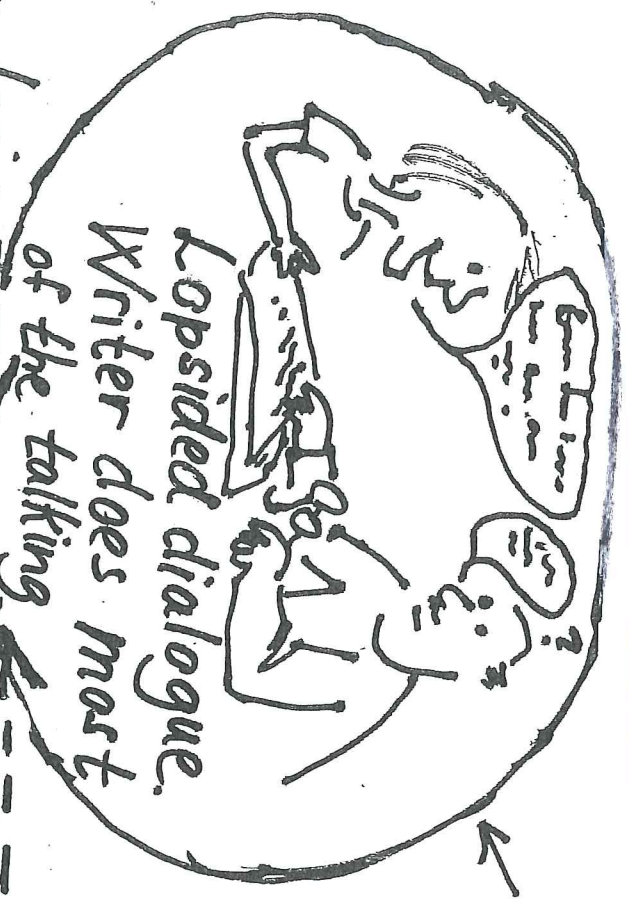 ?
Lopsided dialogue.
Writer does most
of the talking